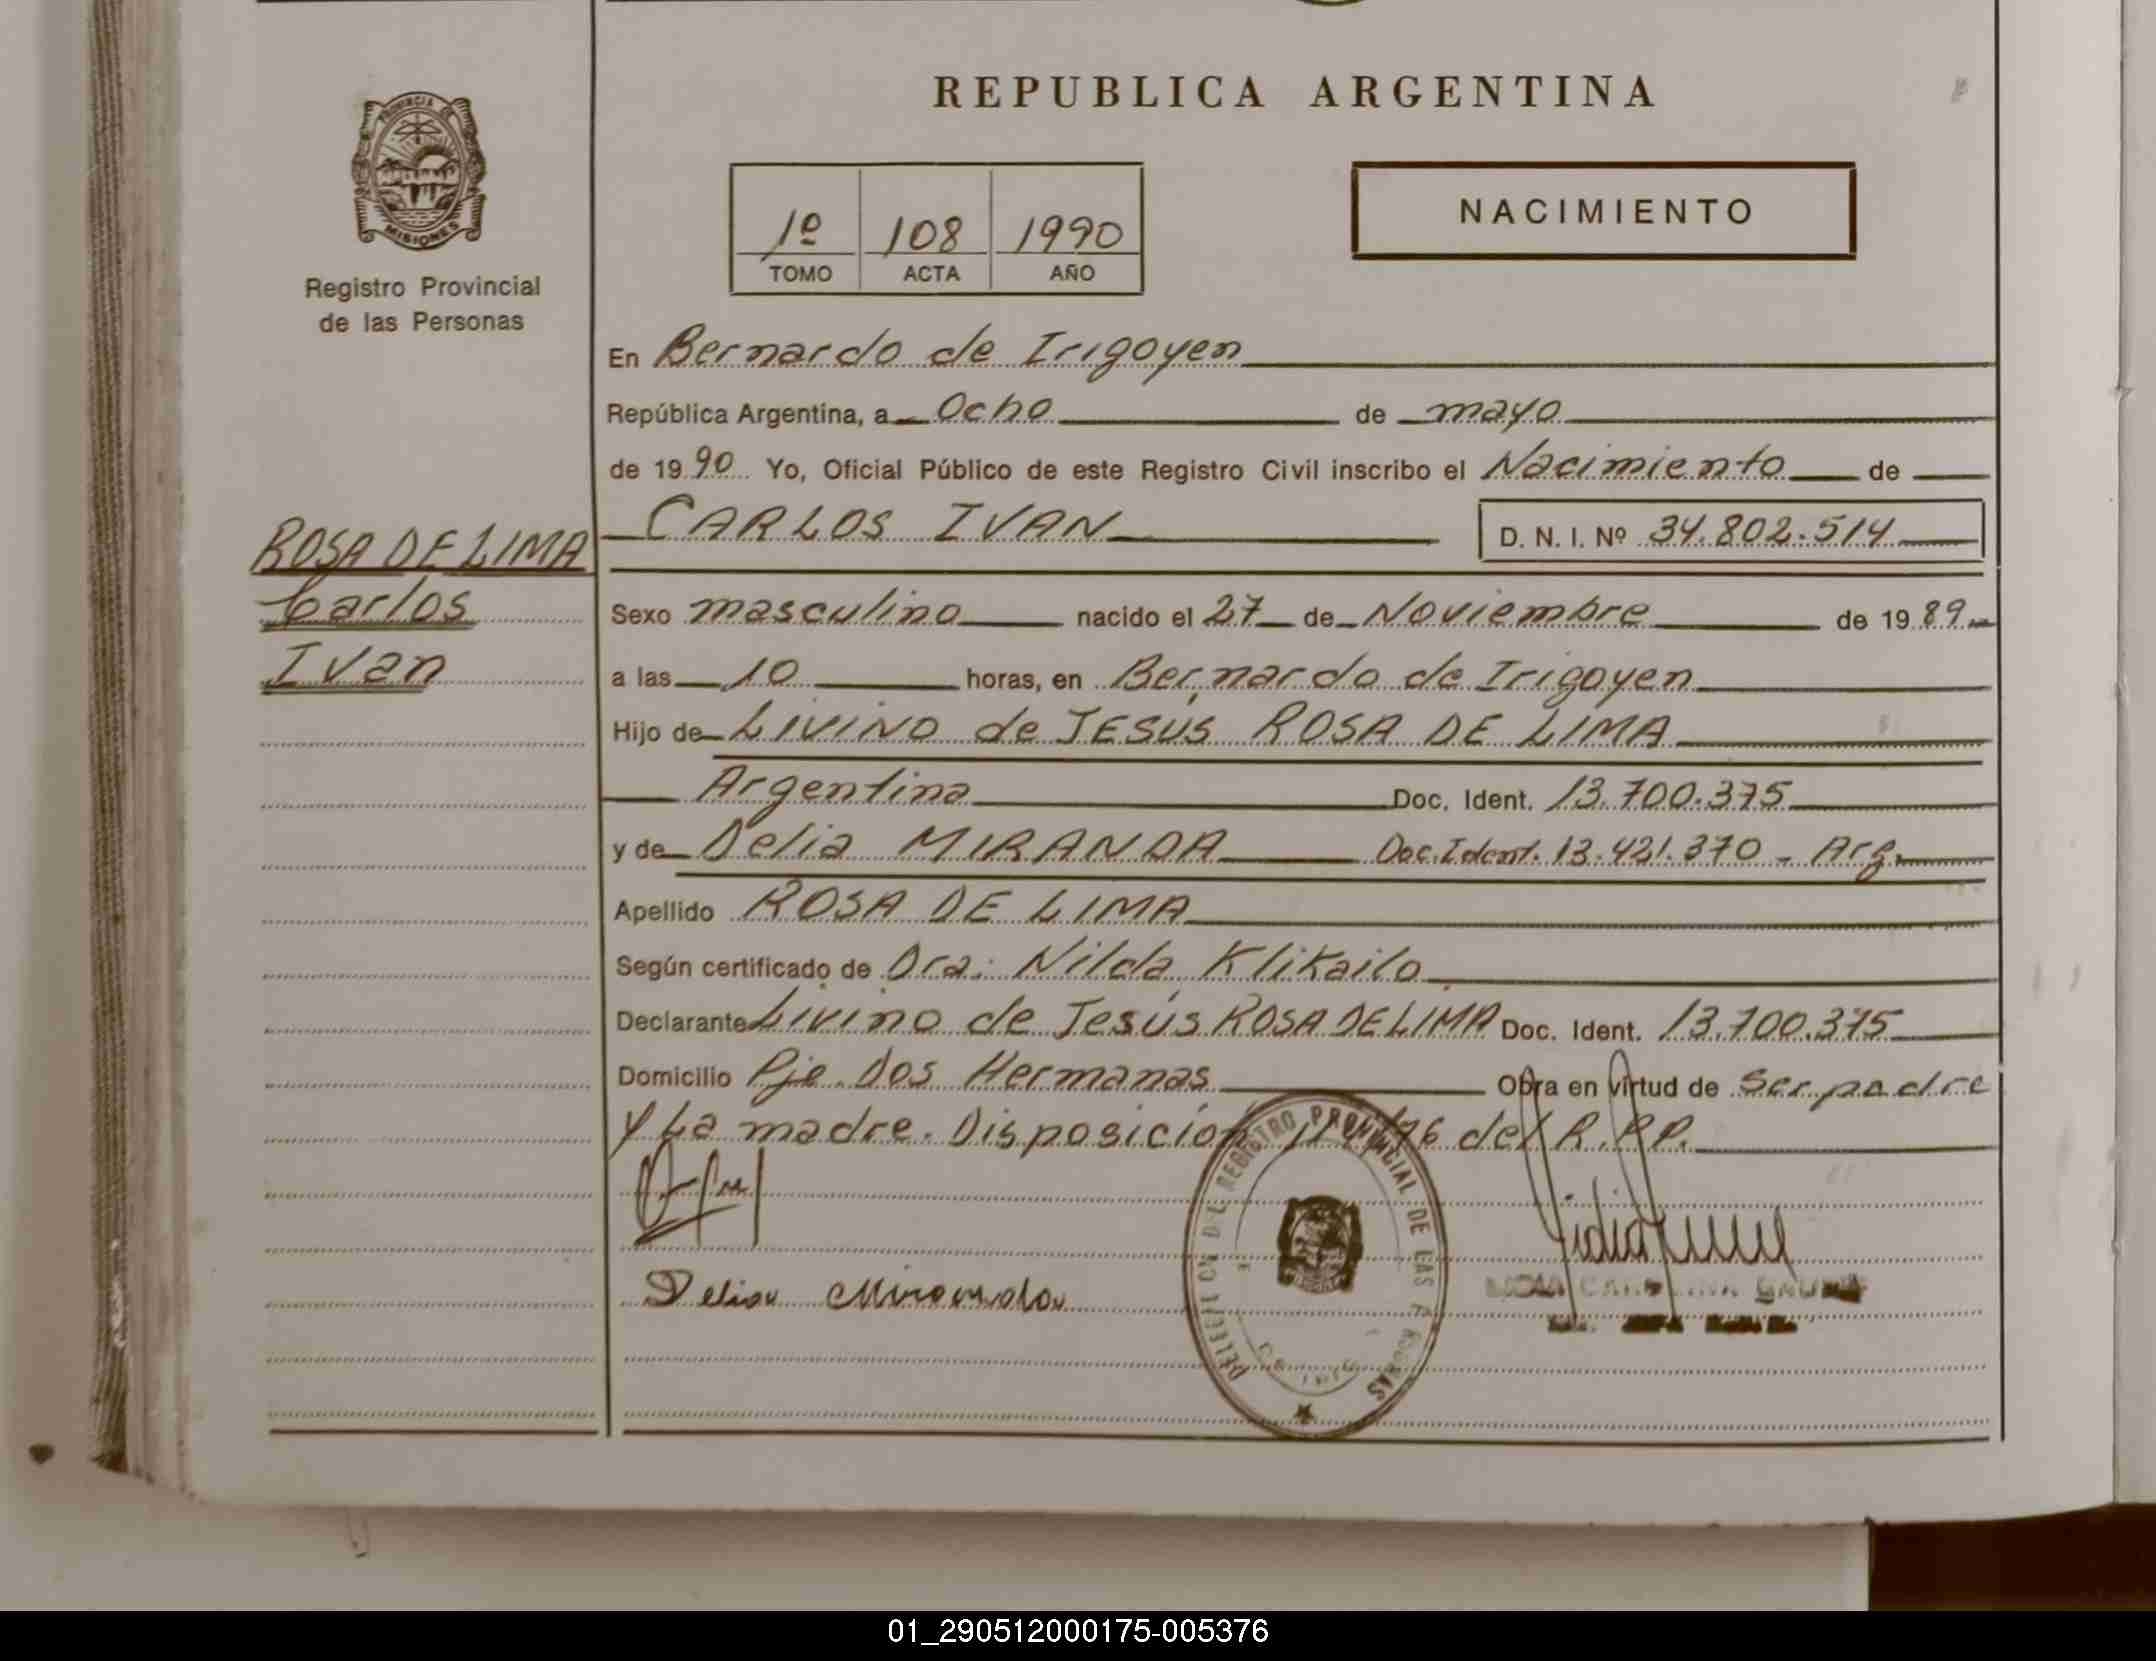 REPUBLICA ARGENTINA
PROVINCIA DE
MISIONES
Registro Provincial
de las Personas
1º 108 1990
TOMO ACTA AÑO
NACIMIENTO
En Bernardo de Irigoyen
República Argentina, a Ocho de mayo
de 1990 Yo, Oficial Público de este Registro Civil inscribo el Nacimiento de
CARLOS IVAN D. N. I. Nº 34.802.514
ROSA DE LIMA
Carlos
Ivan
Sexo masculino nacido el 27 de Noviembre de 1989
a las 10 horas, en Bernardo de Irigoyen
Hijo de LIVINO de JESÚS ROSA DE LIMA
Argentina Doc. Ident. 13.700.375
y de Delia MIRANDA Doc. Ident. 13.421.370 - Arg.
Apellido ROSA DE LIMA
Según certificado de Dra: Nilda Klikailo
Declarante Livino de Jesús ROSA DE LIMA Doc. Ident. 13.700.375
Domicilio Pje. Dos Hermanas Obra en virtud de Ser padre
y La madre. Disposición del R.P.P.
Delia Miranda
DELEGACION DEL REGISTRO PROVINCIAL DE LAS PERSONAS
01_290512000175-005376